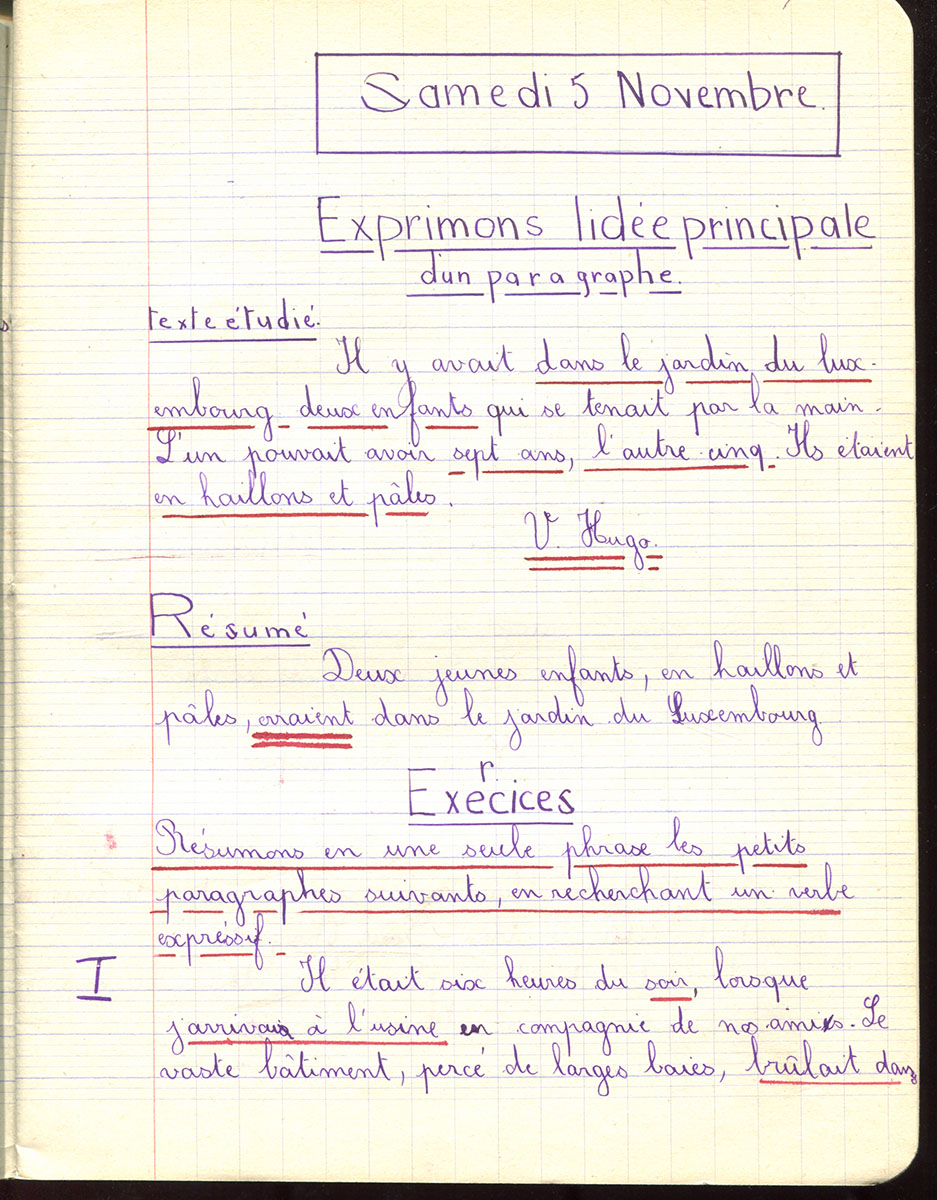 Samedi 5 Novembre.
Exprimons lidée principale
d'un paragraphe.
texte étudié.
Il y avait dans le jardin du lux-
embourg deux enfants qui se tenait par la main.
L'un pouvait avoir sept ans, l'autre cinq. Ils étaient
en haillons et pâles.
V. Hugo.
Résumé
Deux jeunes enfants, en haillons et
pâles, erraient dans le jardin du Luxembourg
Exercices
Résumons en une seule phrase les petits
paragraphes suivants, en recherchant un verbe
expréssif.
I Il était six heures du soir, lorsque
j'arrivais à l'usine en compagnie de nos amis. Le
vaste bâtiment, percé de larges baies, brûlait dans